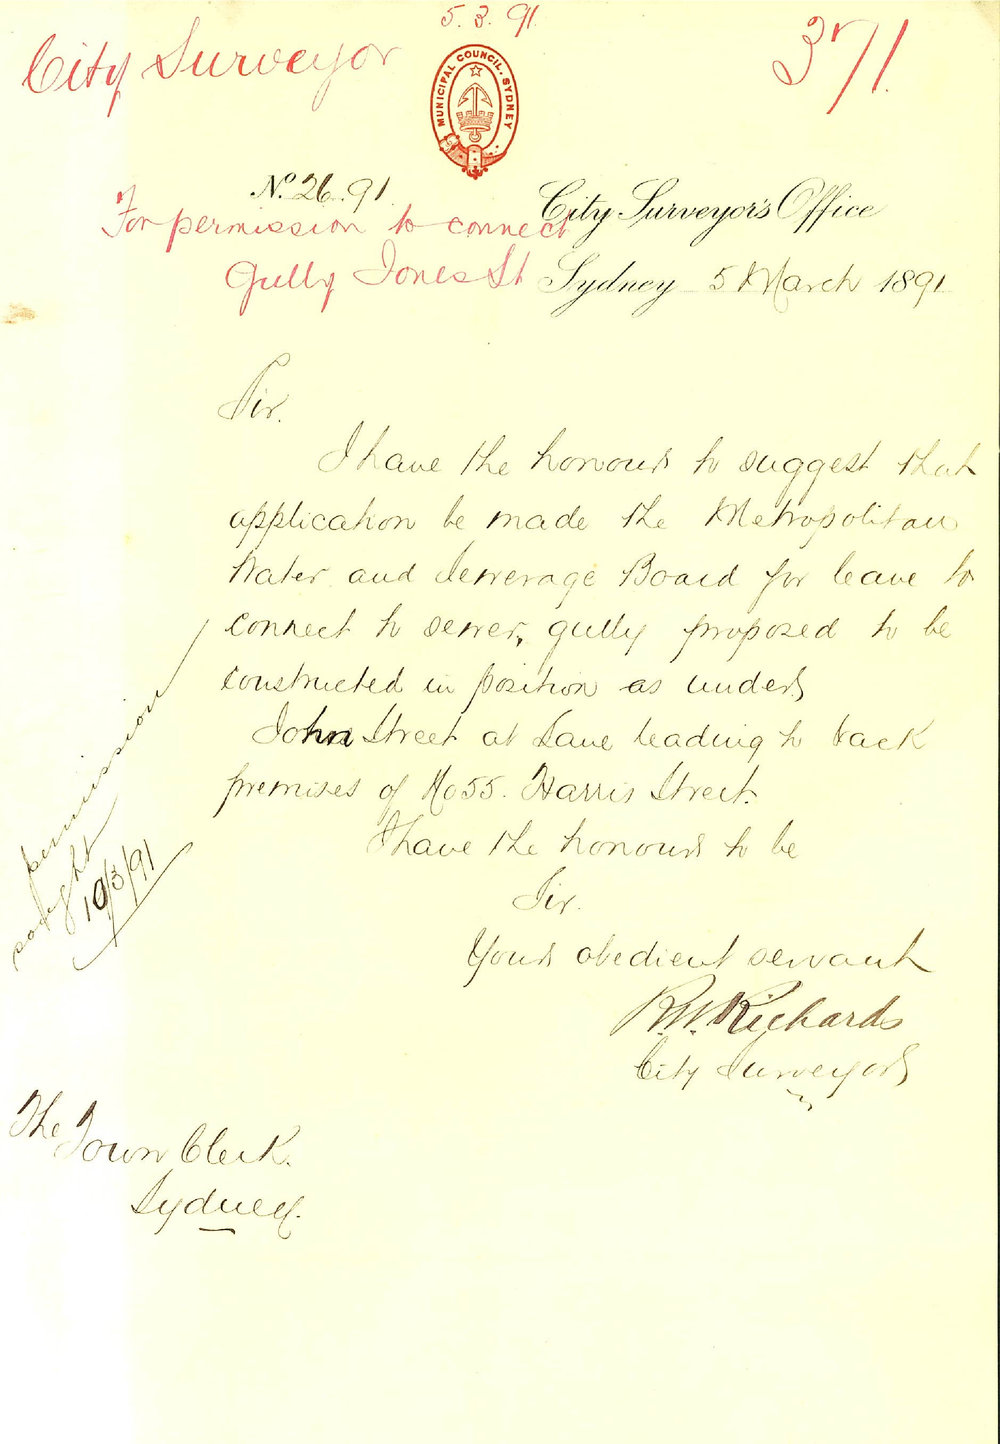 5.3.91.
City Surveyor
371.
MUNICIPAL COUNCIL. SYDNEY
No. 26.91
City Surveyor's Office
For permission to connect
Gully Jones St
Sydney 5 March 1891
Sir.
I have the honour to suggest that
application be made the Metropolitan
Water and Sewerage Board for leave to
connect to sewer, gully proposed to be
constructed in position as under
John Street at Lane leading to back
premises of No 55. Harris Street.
I have the honour to be
Sir.
Your obedient servant
R.W. Richards
City Surveyor
permission
sought
10/3/91
The Town Clerk.
Sydney.